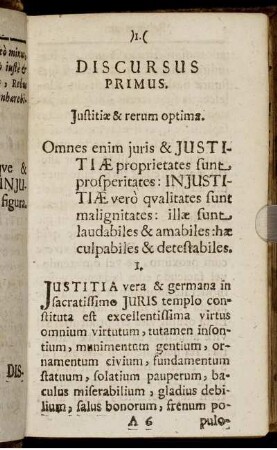 ò minus,
ò iustè &
, Rebus
nharobi-
qve &
INJU-
figura.
DIS-
)1.(
DISCURSUS
PRIMUS.
Justitiæ & rerum optima.
Omnes enim juris & JUSTI-
TIÆ proprietates sunt
prosperitates: INJUSTI-
TIÆ verò qvalitates sunt
malignitates: illæ sunt
laudabiles & amabiles: hæ
culpabiles & detestabiles.
1.
JUSTITIA vera & germana in
sacratissimo JURIS templo con-
stituta est excellentissima virtus
omnium virtutum, tutamen inson-
tium, munimentum gentium, or-
namentum civium, fundamentum
statuum, solatium pauperum, ba-
culus miserabilium, gladius debi-
lium, salus bonorum, frenum po-
A 6 pulo-